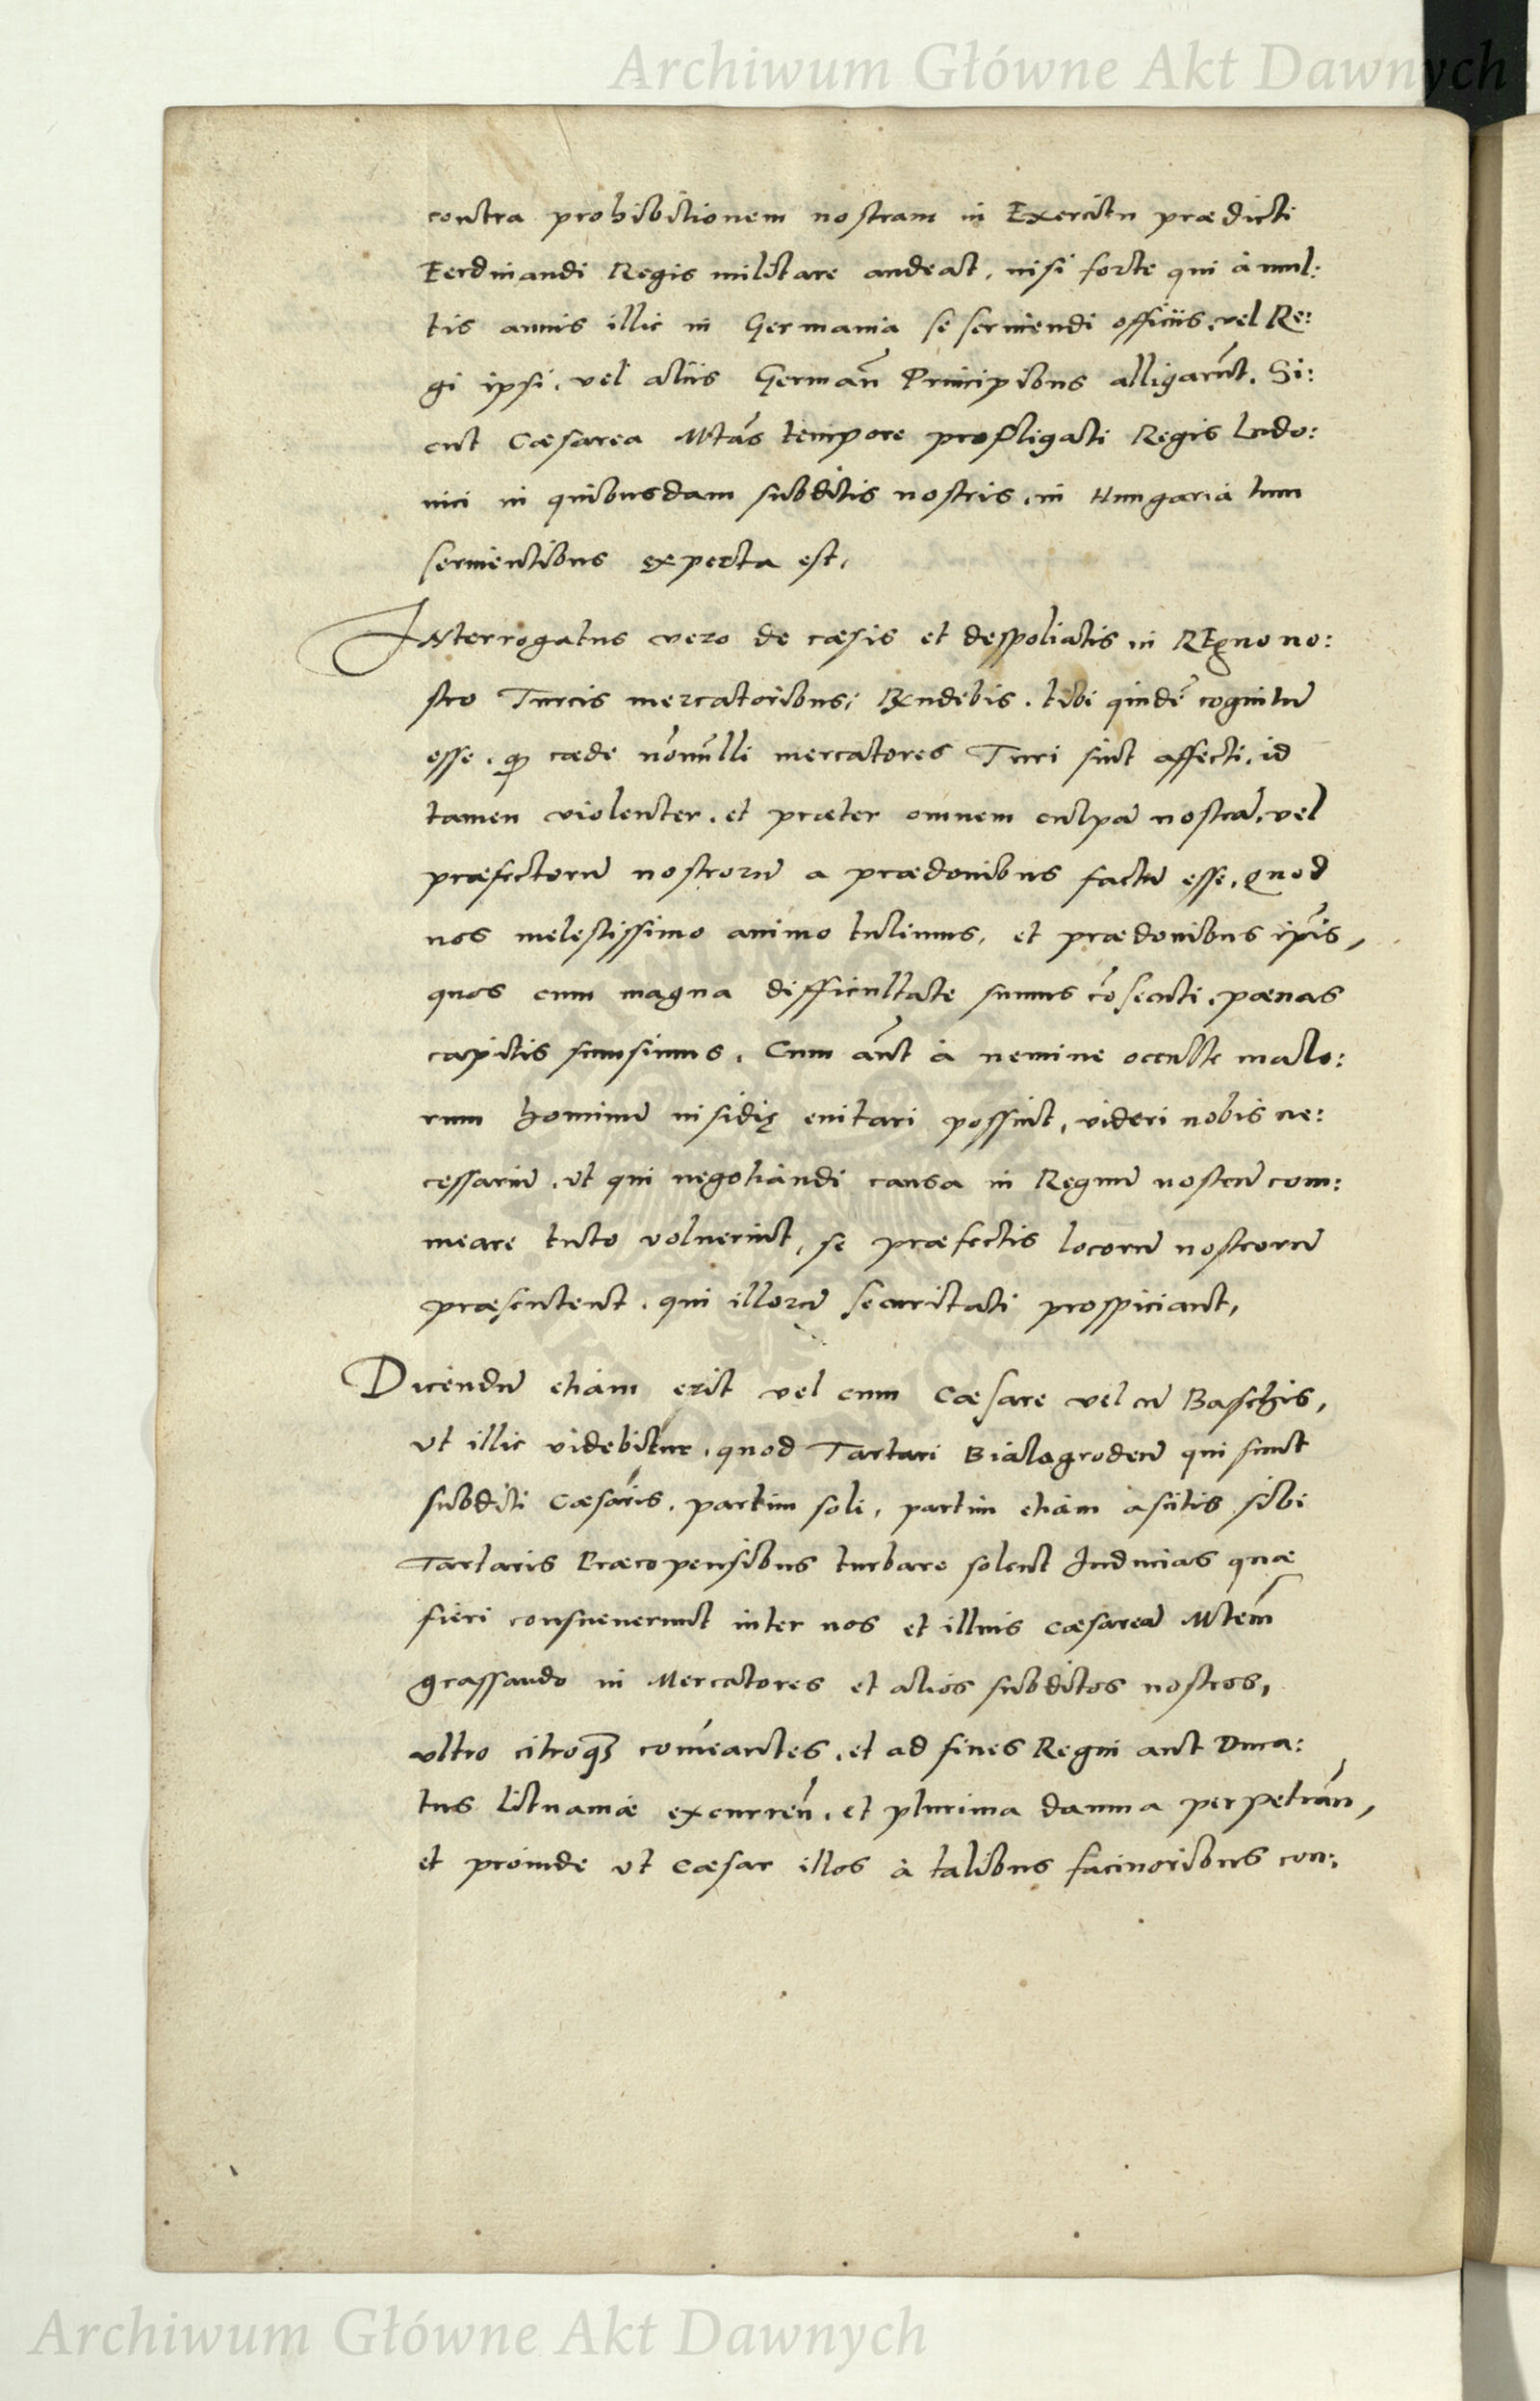 Archiwum Główne Akt Dawnych
contra prohibitionem nostram in Exercitu prædicti
Ferdinandi Regis militare audeat, nisi forte qui à mul:
tis annis illic in Germania se seruiendi officiis, vel Re:
gi ipsi, vel aliis Germañ Principibus alligarũt. Si:
cut Cæsarea Mtãs tempore profligati Regis Ludo:
uici in quibusdam subditis nostris, in Hungaria tum
seruientibus experta est,
INterrogatus vero de cæsis et despoliatis in REgno no:
stro Turcis mercatoribus; Rñdebis, tibi quidẽ cognitũ
esse, qp cæde nõnũlli mercatores Turci sint affecti, id
tamen violenter, et præter omnem culpã nostrã, vel
præfectorũ nostrorũ a prædonibus factũ esse, Quod
nos melestissimo animo tulimus, et prædonibus ip̃is,
quos cum magna difficultate sumus cõsecuti, pœnas
capitis sumsimus. Cum aũt à nemine occultæ malo:
rum hominũ insidię euitari possint, videri nobis ne:
cessariũ, vt qui negotiandi causa in Regnũ nostrũ com:
meare tuto voluerint, se præfectis locorũ nostrorũ
præsentent, qui illorũ securitati prospiciant,
Dicendũ etiam erit vel cum Cæsare vel cũ Baschis,
vt illic videbitur, quod Tartari Bialogrodeñ qui sunt
subditi Cæsaris, partim soli, partim etiam asciitis sibi
Tartaris Præcopensibus turbare solent Inducias quæ
fieri consueuerunt inter nos et illius Cæsareã Mtem̃
grassando in Mercatores et alios subditos nostros,
vltro citroq3 com̃eantes, et ad fines Regni aut Duca:
tus Lituaniæ excurreñ, et plurima damna perpetrañ,
et proinde vt Cæsar illos à talibus facinoribus con:
Archiwum Główne Akt Dawnych